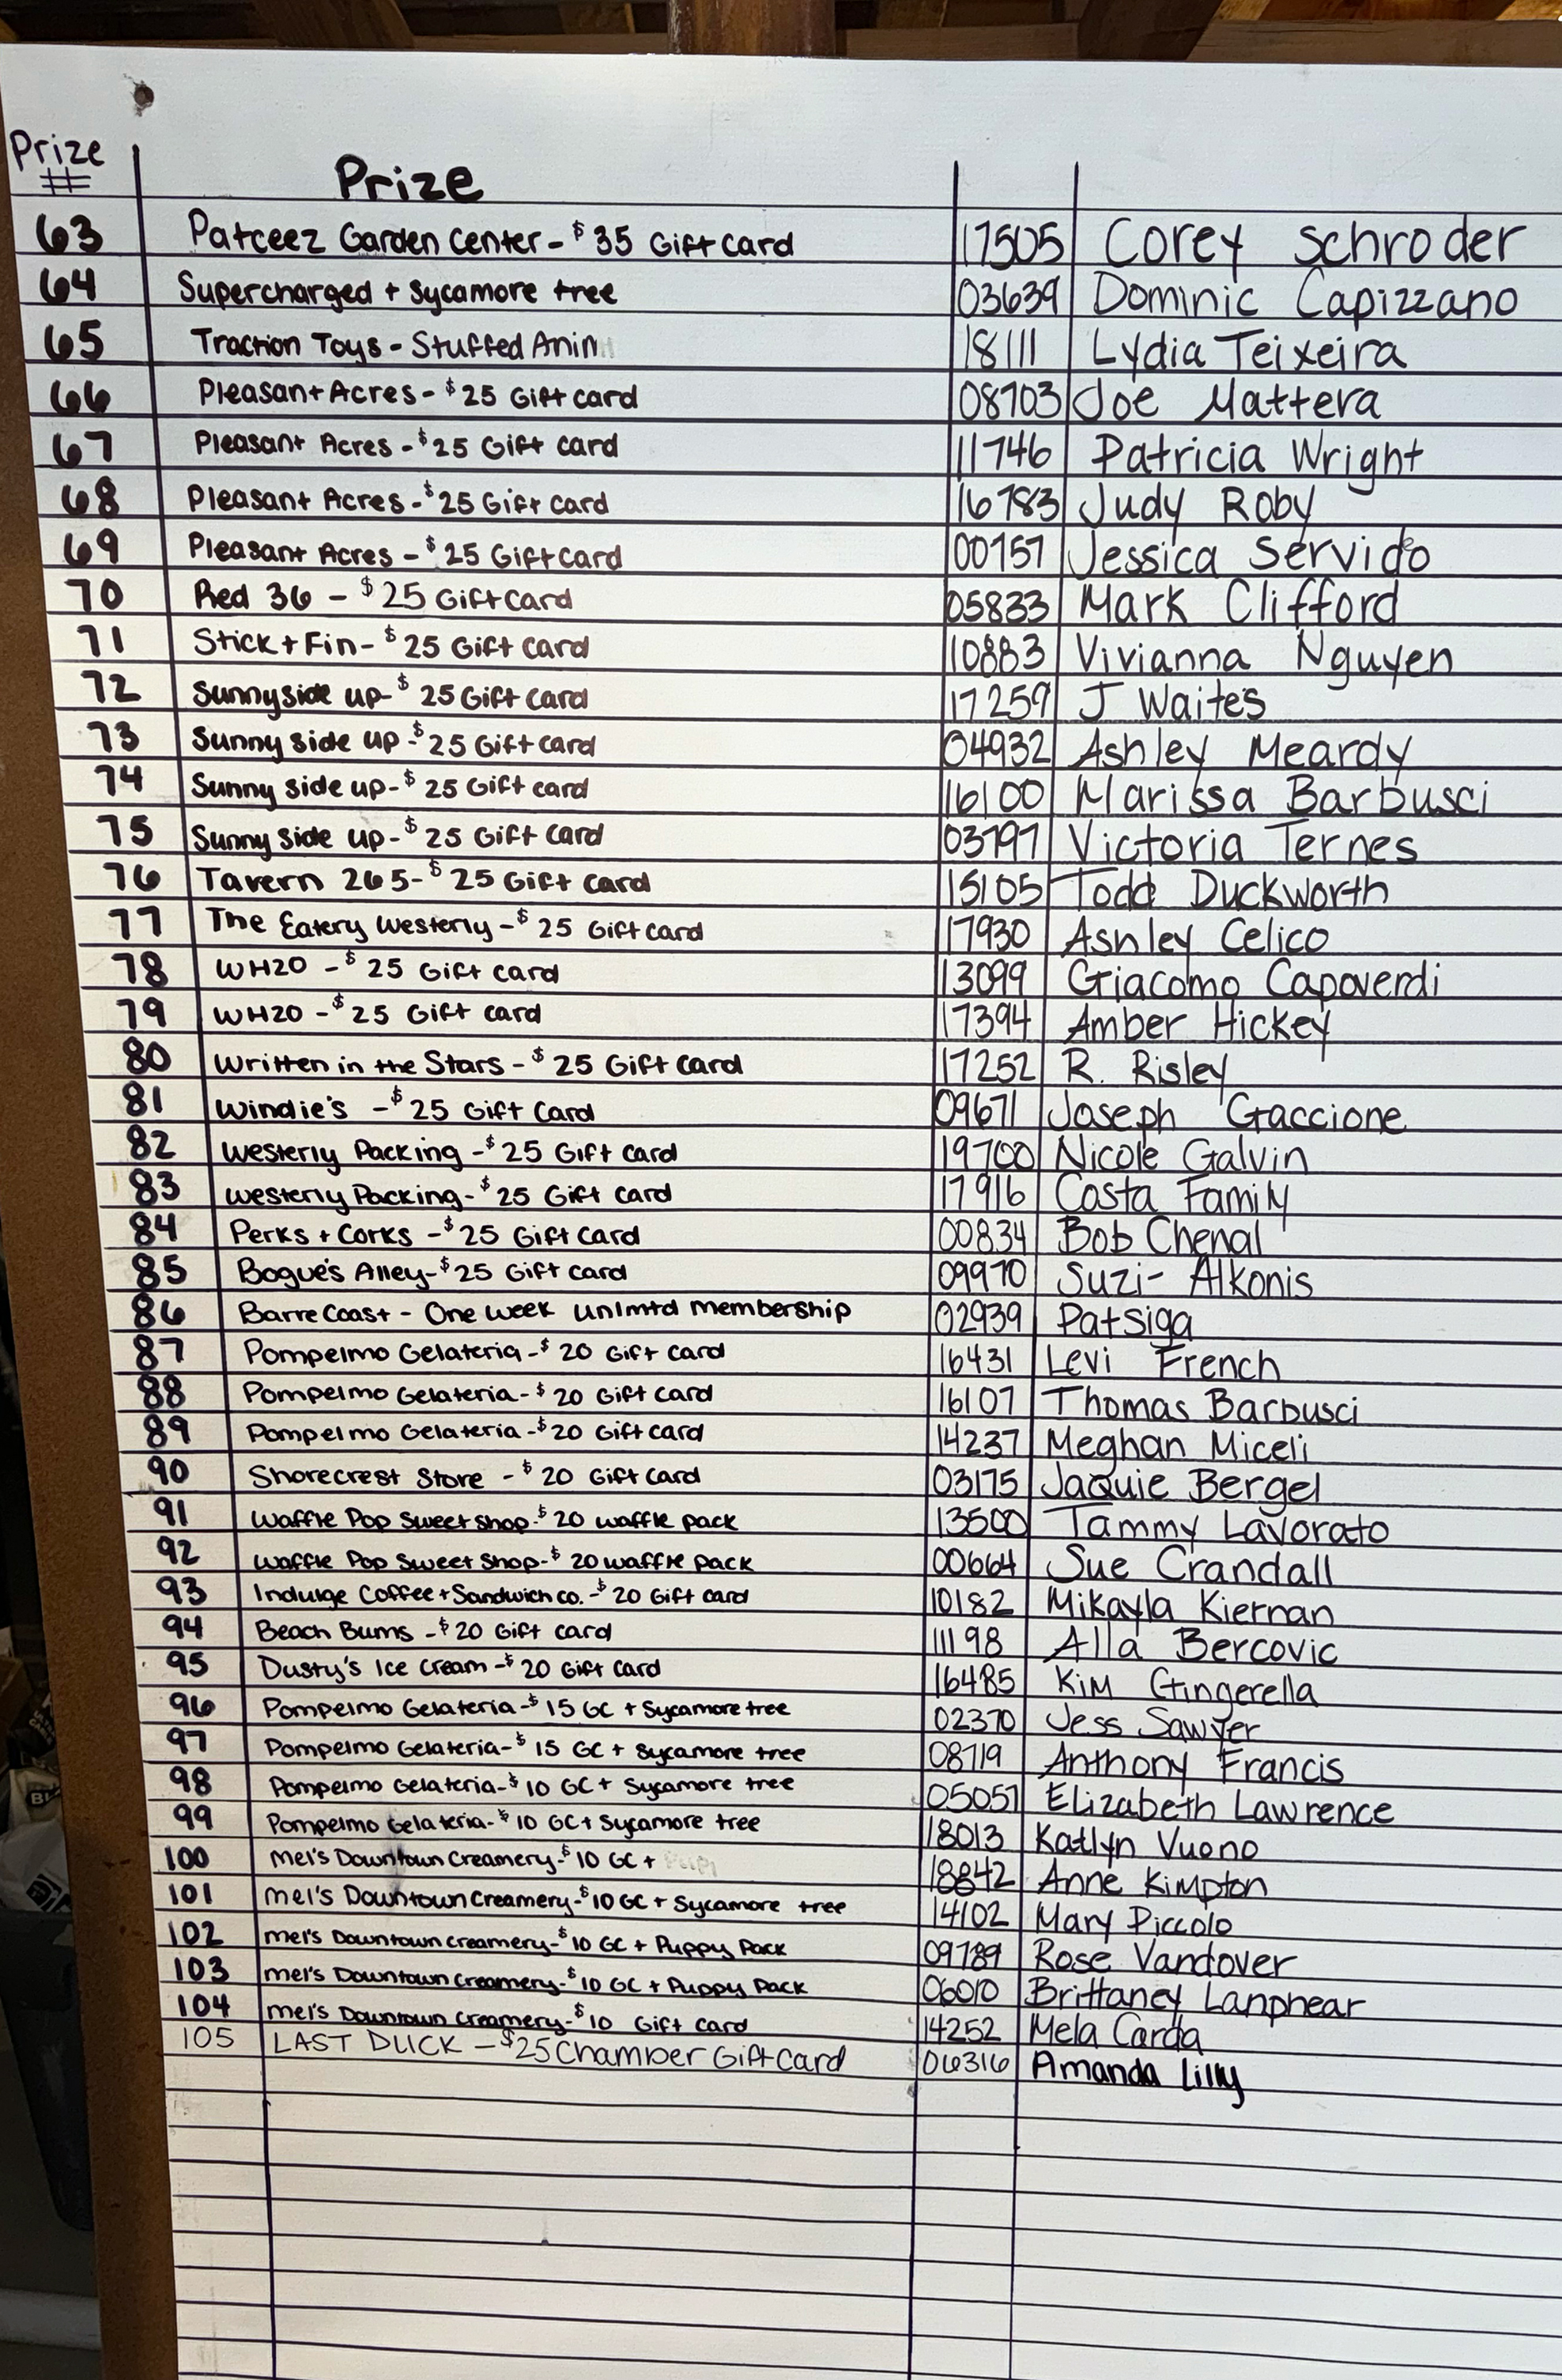 Prize # Prize
63 Patceez Garden Center - $35 Gift Card 17505 Corey Schroder
64 Supercharged + Sycamore tree 03639 Dominic Capizzano
65 Traction Toys - Stuffed Anim 18111 Lydia Teixeira
66 Pleasant Acres - $25 Gift card 08703 Joe Mattera
67 Pleasant Acres - $25 Gift card 11746 Patricia Wright
68 Pleasant Acres - $25 Gift card 16783 Judy Roby
69 Pleasant Acres - $25 Gift Card 00757 Jessica Servideo
70 Red 36 - $25 Gift Card 05833 Mark Clifford
71 Stick + Fin - $25 Gift Card 10883 Vivianna Nguyen
72 Sunnyside up - $25 Gift Card 17259 J Waites
73 Sunny side up - $25 Gift card 04932 Ashley Meardy
74 Sunny side up - $25 Gift card 16100 Marissa Barbusci
75 Sunny side up - $25 Gift Card 03797 Victoria Ternes
76 Tavern 265 - $25 Gift Card 15105 Todd Duckworth
77 The Eatery Westerly - $25 Gift card 17930 Ashley Celico
78 WH20 - $25 Gift card 13099 Giacomo Capoverdi
79 WH20 - $25 Gift card 17394 Amber Hickey
80 Written in the Stars - $25 Gift Card 17252 R. Risley
81 Windie's - $25 Gift Card 09671 Joseph Gaccione
82 Westerly Packing - $25 Gift Card 19700 Nicole Galvin
83 Westerly Packing - $25 Gift Card 17916 Costa Family
84 Perks + Corks - $25 Gift Card 00834 Bob Chenal
85 Bogue's Alley - $25 Gift Card 09970 Suzi- Alkonis
86 Barre Coast - One week unlmtd membership 02939 Pat Siga
87 Pompelmo Gelateria - $20 Gift Card 16431 Levi French
88 Pompelmo Gelateria - $20 Gift Card 16107 Thomas Barbusci
89 Pompelmo Gelateria - $20 Gift card 14237 Meghan Miceli
90 Shorecrest Store - $20 Gift Card 03175 Jaquie Bergel
91 Waffle Pop Sweet Shop - $20 waffle pack 13500 Tammy Lavorato
92 Waffle Pop Sweet Shop - $20 waffle pack 00664 Sue Crandall
93 Indulge Coffee + Sandwich co. - $20 Gift card 10182 Mikayla Kiernan
94 Beach Bums - $20 Gift card 11198 Alla Bercovic
95 Dusty's Ice Cream - $20 Gift Card 16485 Kim Gingerella
96 Pompelmo Gelateria - $15 GC + Sycamore tree 02370 Jess Sawyer
97 Pompelmo Gelateria - $15 GC + Sycamore tree 08719 Anthony Francis
98 Pompelmo Gelateria - $10 GC + Sycamore tree 05057 Elizabeth Lawrence
99 Pompelmo Gelateria - $10 GC + Sycamore tree 18013 Katlyn Vuono
100 Mel's Downtown Creamery - $10 GC + 18842 Anne Kimpton
101 Mel's Downtown Creamery - $10 GC + Sycamore tree 14102 Mary Piccolo
102 Mel's Downtown Creamery - $10 GC + Puppy Pack 09789 Rose Vandover
103 Mel's Downtown Creamery - $10 GC + Puppy Pack 06010 Brittaney Lanphear
104 Mel's Downtown Creamery - $10 Gift Card 14252 Mela Carda
105 LAST DUCK - $25 Chamber Gift Card 06316 Amanda Lilly